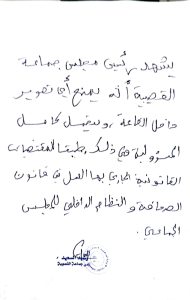 يشهد رئيس مجلس جماعة
القصيبة أنه يمنع أي تصوير
داخل القاعة، ويتحمل كامل
المسؤولية في ذلك طبقا للمقتضيات
القانونية الجاري بها العمل في قانون
الصحافة والنظام الداخلي للمجلس
الجماعي.